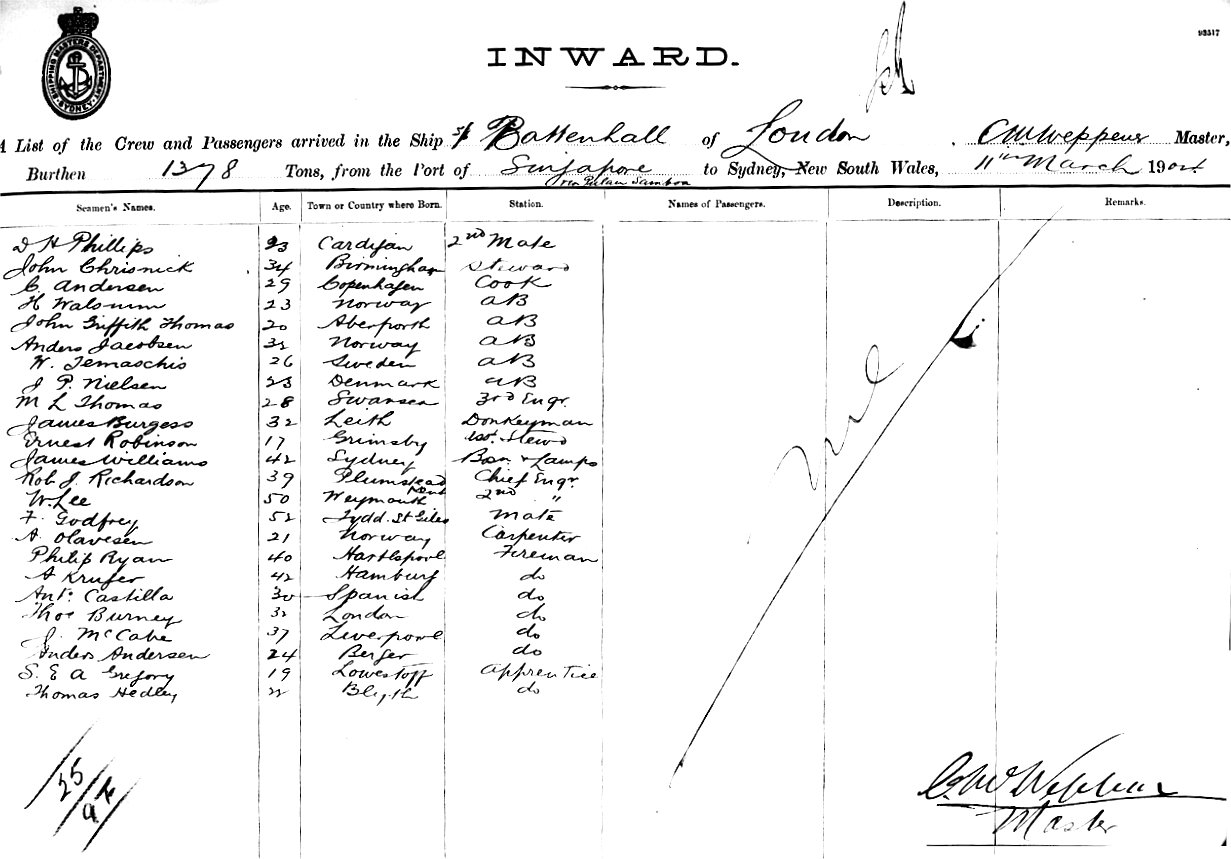 93517
SHIPPING MASTERS DEPARTMENT SYDNEY
INWARD.
A List of the Crew and Passengers arrived in the Ship Battenhall of London , Master,
Burthen 1378 Tons, from the Port of Singapore to Sydney, New South Wales, 11th March 1904
via Pulau Sambon
Seamen's Names. Age. Town or Country where Born. Station. Names of Passengers. Description. Remarks.
D H Phillips 23 Cardigan 2nd Mate
John Chrisnick 34 Birmingham Steward
C. Andersen 29 Copenhagen Cook
H Walsumm 23 Norway AB
John Griffith Thomas 20 Aberporth AB
Anders Jacobsen 32 Norway AB
W. Temaschis 26 Sweden AB
J P. Nielsen 23 Denmark AB
M L Thomas 28 Swansea 3rd Engr.
James Burgess 32 Leith Donkeyman
Ernest Robinson 17 Grimsby Asst. Stewd
James Williams 42 Sydney Bosn & Lamps
Rob J. Richardson 39 Plumstead Kent Chief Engr
W. Lee 50 Weymouth 2nd "
F. Godfrey 52 Tydd. St Giles Mate
A. Olavesen 21 Norway Carpenter
Philip Ryan 40 Hartlepool Fireman
A Kruger 42 Hamburg do
Anto. Castilla 30 Spanish do
Thos Burney 32 London do
J. McCabe 37 Liverpool do
Anders Andersen 24 Berger do
S. E A Gregory 19 Lowestoft Apprentice
Thomas Hedley 22 Blyth do
Nil
25/
C. W. Weppner
Master